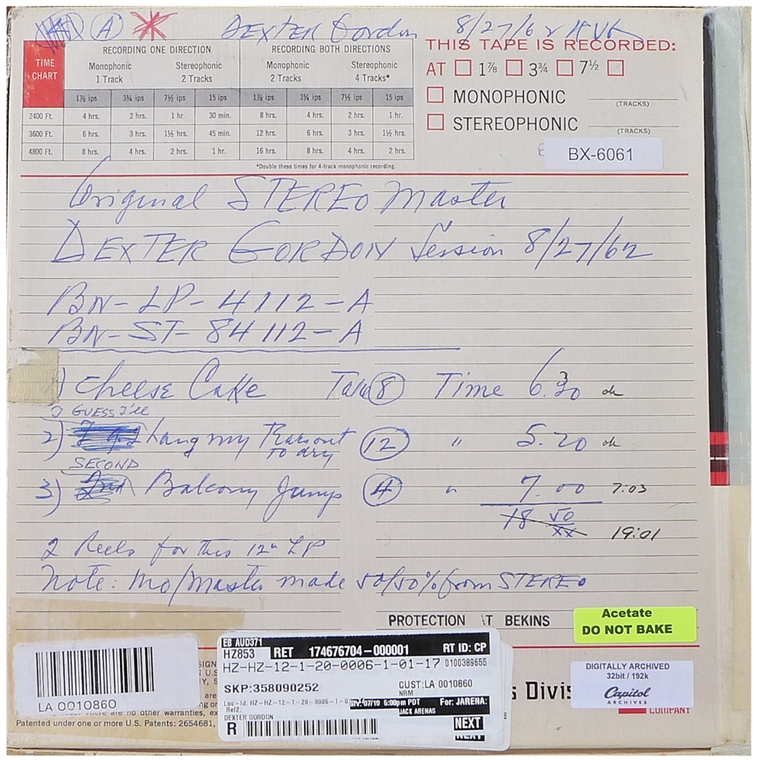 A DEXTER GORDON 8/27/62 RVG
THIS TAPE IS RECORDED:
AT 1⅞ 3¾ 7½
MONOPHONIC (TRACKS)
STEREOPHONIC (TRACKS)
BX-6061
TIME CHART
RECORDING ONE DIRECTION RECORDING BOTH DIRECTIONS
Monophonic 1 Track Stereophonic 2 Tracks Monophonic 2 Tracks Stereophonic 4 Tracks*
1⅞ ips 3¾ ips 7½ ips 15 ips 1⅞ ips 3¾ ips 7½ ips 15 ips
2400 Ft. 4 hrs. 2 hrs. 1 hr. 30 min. 8 hrs. 4 hrs. 2 hrs. 1 hr.
3600 Ft. 6 hrs. 3 hrs. 1½ hrs. 45 min. 12 hrs. 6 hrs. 3 hrs. 1½ hrs.
4800 Ft. 8 hrs. 4 hrs. 2 hrs. 1 hr. 16 hrs. 8 hrs. 4 hrs. 2 hrs.
*Double these times for 4-track monophonic recording.
Original STEREO Master
DEXTER GORDON Session 8/27/62
BN-LP-4112-A
BN-ST-84112-A
1) Cheese Cake Take 8 Time 6.30 ok
GUESS I'll
2) hang my Tears out to dry 12 " 5.20 ok
SECOND
3) Balcony Jump 4 " 7.00 7:03
18 50 19:01
2 Reels for this 12" LP
Note: Mo/Master made 50/50% from STEREO
PROTECTION AT BEKINS
Acetate
DO NOT BAKE
DIGITALLY ARCHIVED
32bit / 192k
Capitol
ARCHIVES
COMPANY
s Divis
LA 0010860
Patented under one or more U.S. Patents: 2654681,
EB AUD371
HZ853 RET 174676704-000001 RT ID: CP
HZ-HZ-12-1-20-0006-1-01-17 0100389655
SKP:358090252 CUST:LA 0010860
NRM
6:00pm PDT For: JARENA:
JACK ARENAS
DEXTER GORDON
R NEXT